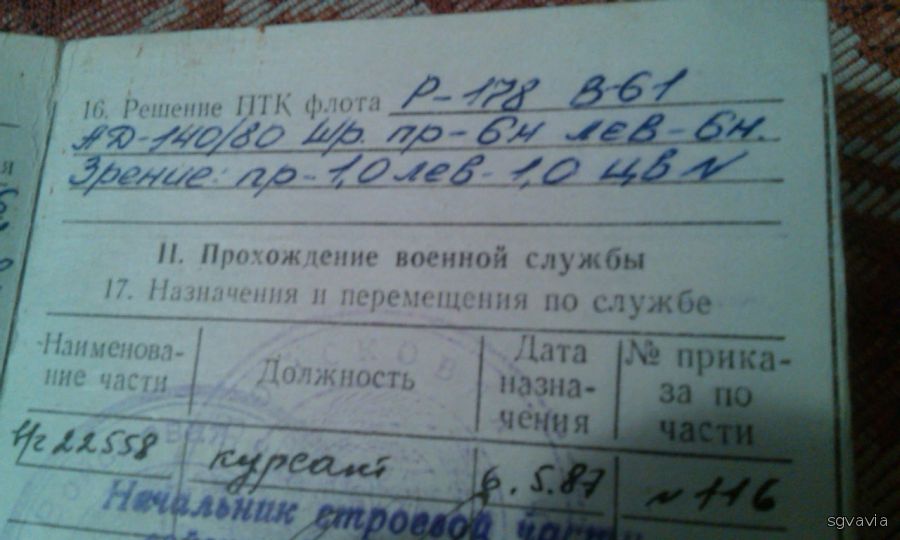 16. Решение ПТК флота Р-178 В-61
АД-140/80 Шр. пр-6м лев-6м.
Зрение: пр-1,0 лев-1,0 ЦВ N
II. Прохождение военной службы
17. Назначения и перемещения по службе
Наименова-
ние части
Должность
Дата
назна-
чения
№ прика-
за по
части
в/ч 22558 курсант 6.5.87 N 116
Начальник строевой части
sgvavia